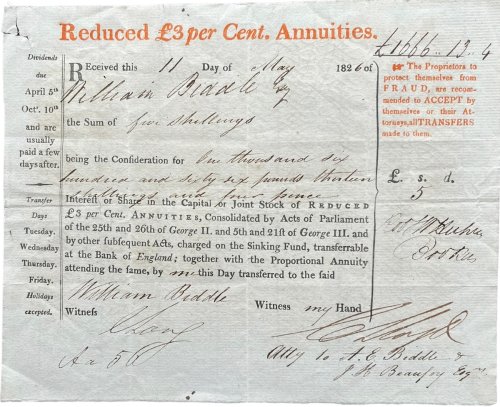 Reduced £3 per Cent. Annuities.
£1666 .. 13 .. 4
Dividends
due
April 5th
Octr. 10th
and are
usually
paid a few
days after.
Transfer
Days
Tuesday.
Wednesday
Thursday.
Friday.
Holidays
excepted.
Received this 11 Day of May 1826 of
William Biddle Esq
the Sum of five shillings
being the Consideration for One thousand six
hundred and sixty six pounds thirteen
shillings and four pence
Interest or Share in the Capital or Joint Stock of REDUCED
£3 per CENT. ANNUITIES, Consolidated by Acts of Parliament
of the 25th and 26th of George II. and 5th and 21st of George III. and
by other subsequent Acts, charged on the Sinking Fund, transferrable
at the Bank of England; together with the Proportional Annuity
attending the same, by me this Day transferred to the said
William Biddle
Witness
Witness my Hand
Atty to A. E. Biddle &
J. H. Beaufoy Esqrs
☞ The Proprietors to
protect themselves from
FRAUD, are recom-
mended to ACCEPT by
themselves or their At-
torneys, all TRANSFERS
made to them.
£. s. d.
5